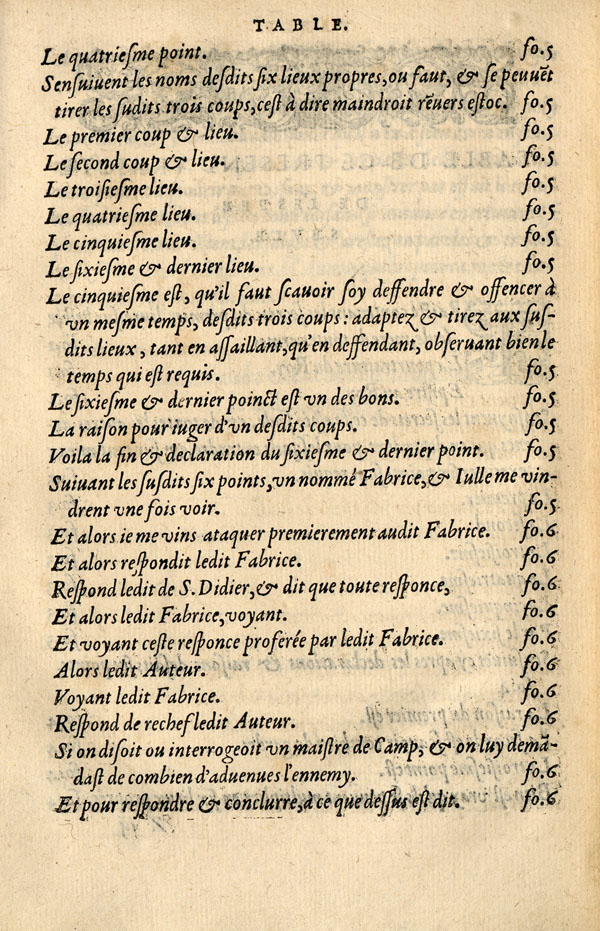 TABLE.
Le quatriesme point. fo.5
Sensuiuent les noms desdits six lieux propres, ou faut, & se peuuẽt
tirer les sudits trois coups, cest à dire maindroit rẽuers estoc. fo.5
Le premier coup & lieu. fo.5
Le second coup & lieu. fo.5
Le troisiesme lieu. fo.5
Le quatriesme lieu. fo.5
Le cinquiesme lieu. fo.5
Le sixiesme & dernier lieu. fo.5
Le cinquiesme est, qu'il faut scauoir soy deffendre & offencer à
vn mesme temps, desdits trois coups : adaptez & tirez aux sus-
dits lieux, tant en assaillant, qu'en deffendant, obseruant bien le
temps qui est requis. fo.5
Le sixiesme & dernier poinct est vn des bons. fo.5
La raison pour iuger d'vn desdits coups. fo.5
Voila la fin & declaration du sixiesme & dernier point. fo.5
Suiuant les susdits six points, vn nommé Fabrice, & Iulle me vin-
drent vne fois voir. fo.5
Et alors ie me vins ataquer premierement audit Fabrice. fo.6
Et alors respondit ledit Fabrice. fo.6
Respond ledit de S. Didier, & dit que toute responce, fo.6
Et alors ledit Fabrice, voyant. fo.6
Et voyant ceste responce proferée par ledit Fabrice. fo.6
Alors ledit Auteur. fo.6
Voyant ledit Fabrice. fo.6
Respond de rechef ledit Auteur. fo.6
Si on disoit ou interrogeoit vn maistre de Camp, & on luy demã-
dast de combien d'aduenues l'ennemy. fo.6
Et pour respondre & conclurre, à ce que dessus est dit. fo.6